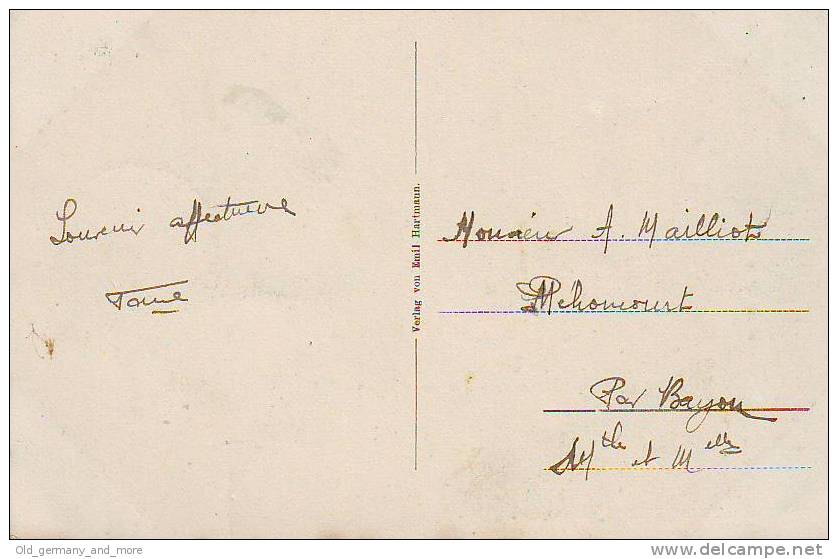 Souvenir affectueux
Verlag von Emil Hartmann.
Monsieur A. Mailliot
Méhoncourt
Par Bayon
Mthe et Melle
Old_germany_and_more
delcampe.net